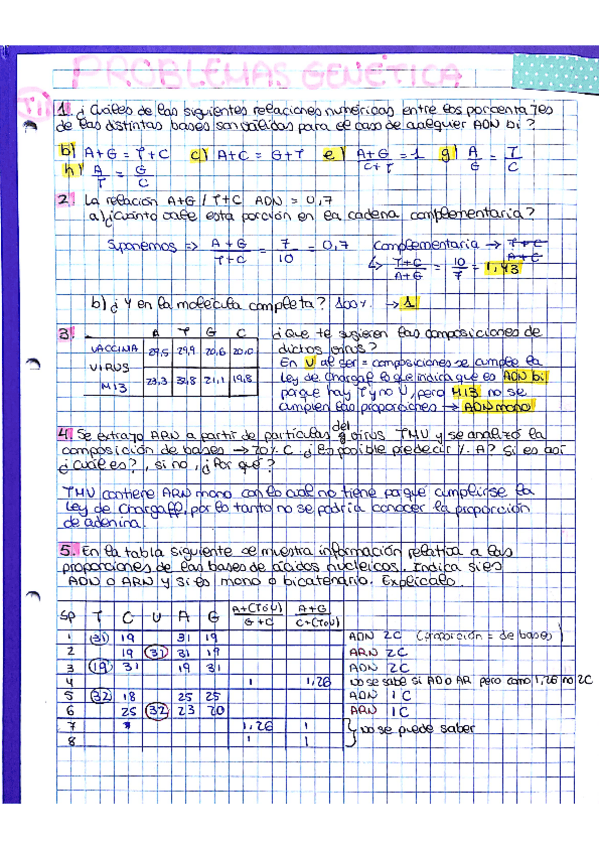 PROBLEMAS GENÉTICA
T1
1. ¿ Cuáles de las siguientes relaciones numéricas entre los porcentajes
de las distintas bases son válidas para el caso de cualquier ADN bi ?
b) A+G = T+C c) A+C = G+T e) A+G / C+T = 1 g) A / G = T / C
h) A / T = G / C
2. La relación A+G / T+C ADN = 0,7
a) ¿Cuánto vale esta porción en la cadena complementaria?
Suponemos => A+G / T+C = 7 / 10 = 0,7 Complementaria → T+C / A+C
↳ T+C / A+G = 10 / 7 = 1,43
b) ¿ Y en la molécula completa? 100% → 1
3. A T G C ¿Que te sugieren las composiciones de
VACCINA 29,5 29,9 20,6 20,0 dichos virus?
VIRUS En V al ser = composiciones se cumple la
M13 23,3 32,8 21,1 19,8 Ley de Chargaff lo que indica que es ADN bi
porque hay T y no U, pero M13 no se
cumplen las proporciones → ADN mono
4. Se extrajo ARN a partir de partículas del virus TMV y se analizó la
composición de bases → 20% C ¿es posible predecir % A? Si es así
¿cuál es?, si no, ¿Por qué?
TMV contiene ARN mono con lo cual no tiene porqué cumplirse la
Ley de Chargaff, por lo tanto no se podría conocer la proporción
de adenina.
5. En la tabla siguiente se muestra información relativa a las
proporciones de las bases de ácidos nucleicos. Indica si es
ADN o ARN y si es mono o bicatenario. Explícalo.
Sp T C U A G A+(ToU) / G+C A+G / C+(ToU)
1 31 19 31 19 ADN 2C (proporción = de bases)
2 19 31 31 19 ARN 2C
3 19 31 19 31 ADN 2C
4 1 1,26 no se sabe si AD o AR pero como 1,26 no 2C
5 32 18 25 25 ADN 1C
6 25 32 23 20 ARN 1C
7 1,26 1 } No se puede saber
8 1 1